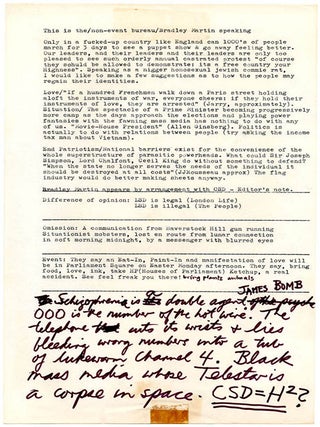 This is the/non-event bureau/Bradley Martin speaking
Only in a fucked-up country like England can 1000's of people
march for 3 days to see a puppet show & go away feeling better.
Our leaders, and their leaders and their leaders are only too
pleased to see such orderly annual castrated protest "of course
they should be allowed to demonstrate: its a free country your
Highness". Speaking as a Nigger homosexual jewish commie rat,
I would like to make a few suggestions as to how the people may
regain their identities.
Love/"If a hundred Frenchmen walk down a Paris street holding
aloft the instruments of war, everyone cheers; if they hold their
instruments of love, they are arrested" (Jarry, approximately).
Situation/ The spectacle of a Prime Minister becoming progressively
more camp as the days approach the elections and playing power
fantasies with the fawning mass media has nothing to do with any
of us. "Movie-House President" (Allen Ginsberg). Politics is
actually to do with relations between people. (try asking the income
tax man about Vietnam)
End Patriotism/National barriers exist for the convenience of the
whole superstructure of parasitic powerheads. What could Sir Joseph
Simpson, Lord Chalfont, Cecil King do without something to defend?
"When the state no longer meets the needs of the individual it
should be destroyed at all costs" (JJRousseau approx) The flag
industry would do better making sheets anyway.
Bradley Martin appears by arrangement with CSD - Editor's note.
Difference of opinion: LSD is legal (London Life)
LSD is illegal (The People)
Omission: A communication from Haverstock Hill gun running
Situationist mobsters, lost en route from lunar connection
in soft morning midnight, by a messenger with blurred eyes
Event: They say an Eat-In, Paint-In and manifestation of love will
be in Parliament Square on Easter Monday afternoon. They say, bring
food, love, ink, take HP(Houses of Parliament) Ketchup, a real
accident. See feel freak you there! bring plants animals
JAMES BOMB
Schizophrenia is a double agent
000 is the number of the hot wire. The
telephone cuts its wrists & lies
bleeding wrong numbers into a tub
of lukewarm Channel 4. Black
mass media whose Telestar is
a corpse in space. CSD=H²?